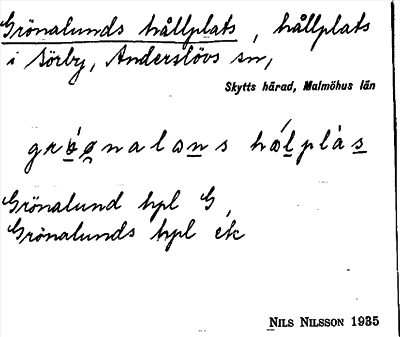 Grönalunds hållplats, hållplats
i Sörby, Anderslövs sn,
Skytts härad, Malmöhus län
Grönalund hpl G
Grönalunds hpl ék
NILS NILSSON 1935